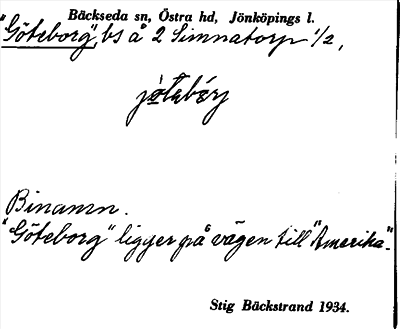 Bäckseda sn, Östra hd, Jönköpings l.
"Göteborg", bs å 2 Simnatorp 1/2,
jötebórj
Binamn.
"Göteborg" ligger på vägen till "Amerika".
Stig Bäckstrand 1934.